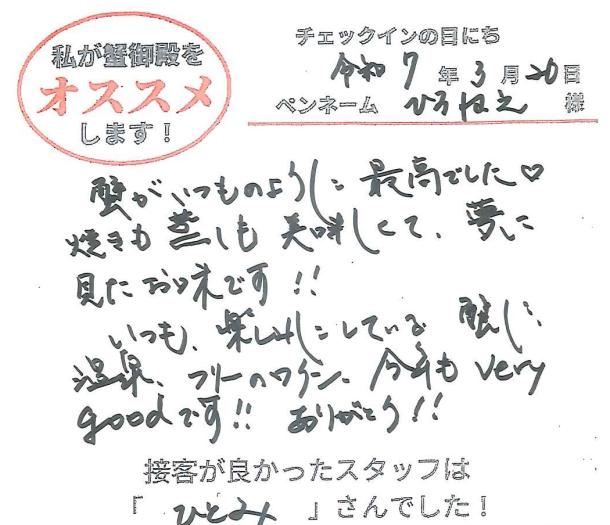 私が蟹御殿を
オススメ
します！
チェックインの日にち
令和 7 年 3 月 20 日
ペンネーム ひろねえ 様
蟹がいつものように最高でした♡
焼きも蒸しも美味しくて、夢に
見たお味です!!
いつも、楽しみにしている 蟹に
温泉、フリーのワイン、今年も very
goodです!! ありがとう!!
接客が良かったスタッフは
「 ひとみ 」さんでした！